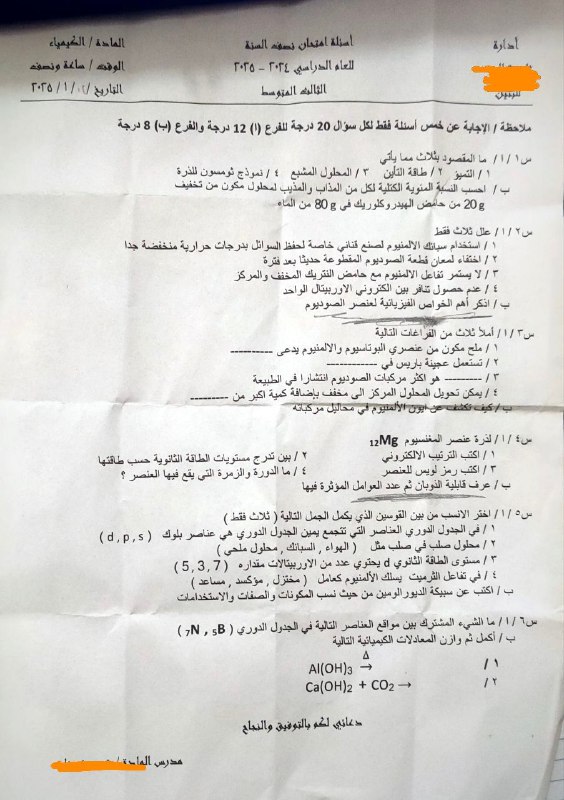 أدارة
أسئلة امتحان نصف السنة
المادة / الكيمياء
للعام الدراسي ٢٠٢٤ - ٢٠٢٥
الوقت / ساعة ونصف
للبنين
الثالث المتوسط
التاريخ / /١ / ٢٠٢٥
ملاحظة / الاجابة عن خمس أسئلة فقط لكل سؤال 20 درجة للفرع (ا) 12 درجة والفرع (ب) 8 درجة
س١ / ا/ ما المقصود بثلاث مما يأتي
١ / التميز ٢ / طاقة التأين ٣ / المحلول المشبع ٤ / نموذج ثومسون للذرة
ب / احسب النسبة المئوية الكتلية لكل من المذاب والمذيب لمحلول مكون من تخفيف
20 g من حامض الهيدروكلوريك في 80 g من الماء
س٢ / ا/ علل ثلاث فقط
١ / استخدام سبائك الالمنيوم لصنع قناني خاصة لحفظ السوائل بدرجات حرارية منخفضة جدا
٢ / اختفاء لمعان قطعة الصوديوم المقطوعة حديثا بعد فترة
٣ / لا يستمر تفاعل الالمنيوم مع حامض النتريك المخفف والمركز
٤ / عدم حصول تنافر بين الكتروني الاوربيتال الواحد
ب / اذكر أهم الخواص الفيزيائية لعنصر الصوديوم
س٣ / ا/ أملأ ثلاث من الفراغات التالية
١ / ملح مكون من عنصري البوتاسيوم والالمنيوم يدعى ----------
٢ / تستعمل عجينة باريس في ------------
٣ / --------- هو اكثر مركبات الصوديوم انتشارا في الطبيعة
٤ / يمكن تحويل المحلول المركز الى مخفف بإضافة كمية اكبر من ---------
ب / كيف تكشف عن ايون الألمنيوم في محاليل مركباته
س٤ / ا/ لذرة عنصر المغنسيوم ₁₂Mg
١ / اكتب الترتيب الالكتروني ٢ / بين تدرج مستويات الطاقة الثانوية حسب طاقتها
٣ / اكتب رمز لويس للعنصر ٤ / ما الدورة والزمرة التي يقع فيها العنصر ؟
ب / عرف قابلية الذوبان ثم عدد العوامل المؤثرة فيها
س٥ / ا/ اختر الانسب من بين القوسين الذي يكمل الجمل التالية ( ثلاث فقط )
١ / في الجدول الدوري العناصر التي تتجمع يمين الجدول الدوري هي عناصر بلوك ( d , p , s )
٢ / محلول صلب في صلب مثل ( الهواء , السبائك , محلول ملحي )
٣ / مستوى الطاقة الثانوي d يحتوي عدد من الاوربيتالات مقداره ( 5, 3, 7 )
٤ / في تفاعل الثرميت يسلك الألمنيوم كعامل ( مختزل , مؤكسد , مساعد )
ب / اكتب عن سبيكة الديورالومين من حيث نسب المكونات والصفات والاستخدامات
س٦ / ا/ ما الشيء المشترك بين مواقع العناصر التالية في الجدول الدوري ( ₇N , ₅B )
ب / أكمل ثم وازن المعادلات الكيميائية التالية
١ / Al(OH)₃ →Δ
٢ / Ca(OH)₂ + CO₂ →
دعائي لكم بالتوفيق والنجاح
مدرس المادة /